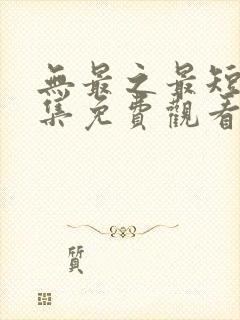 無最之最短
集免費觀看
質